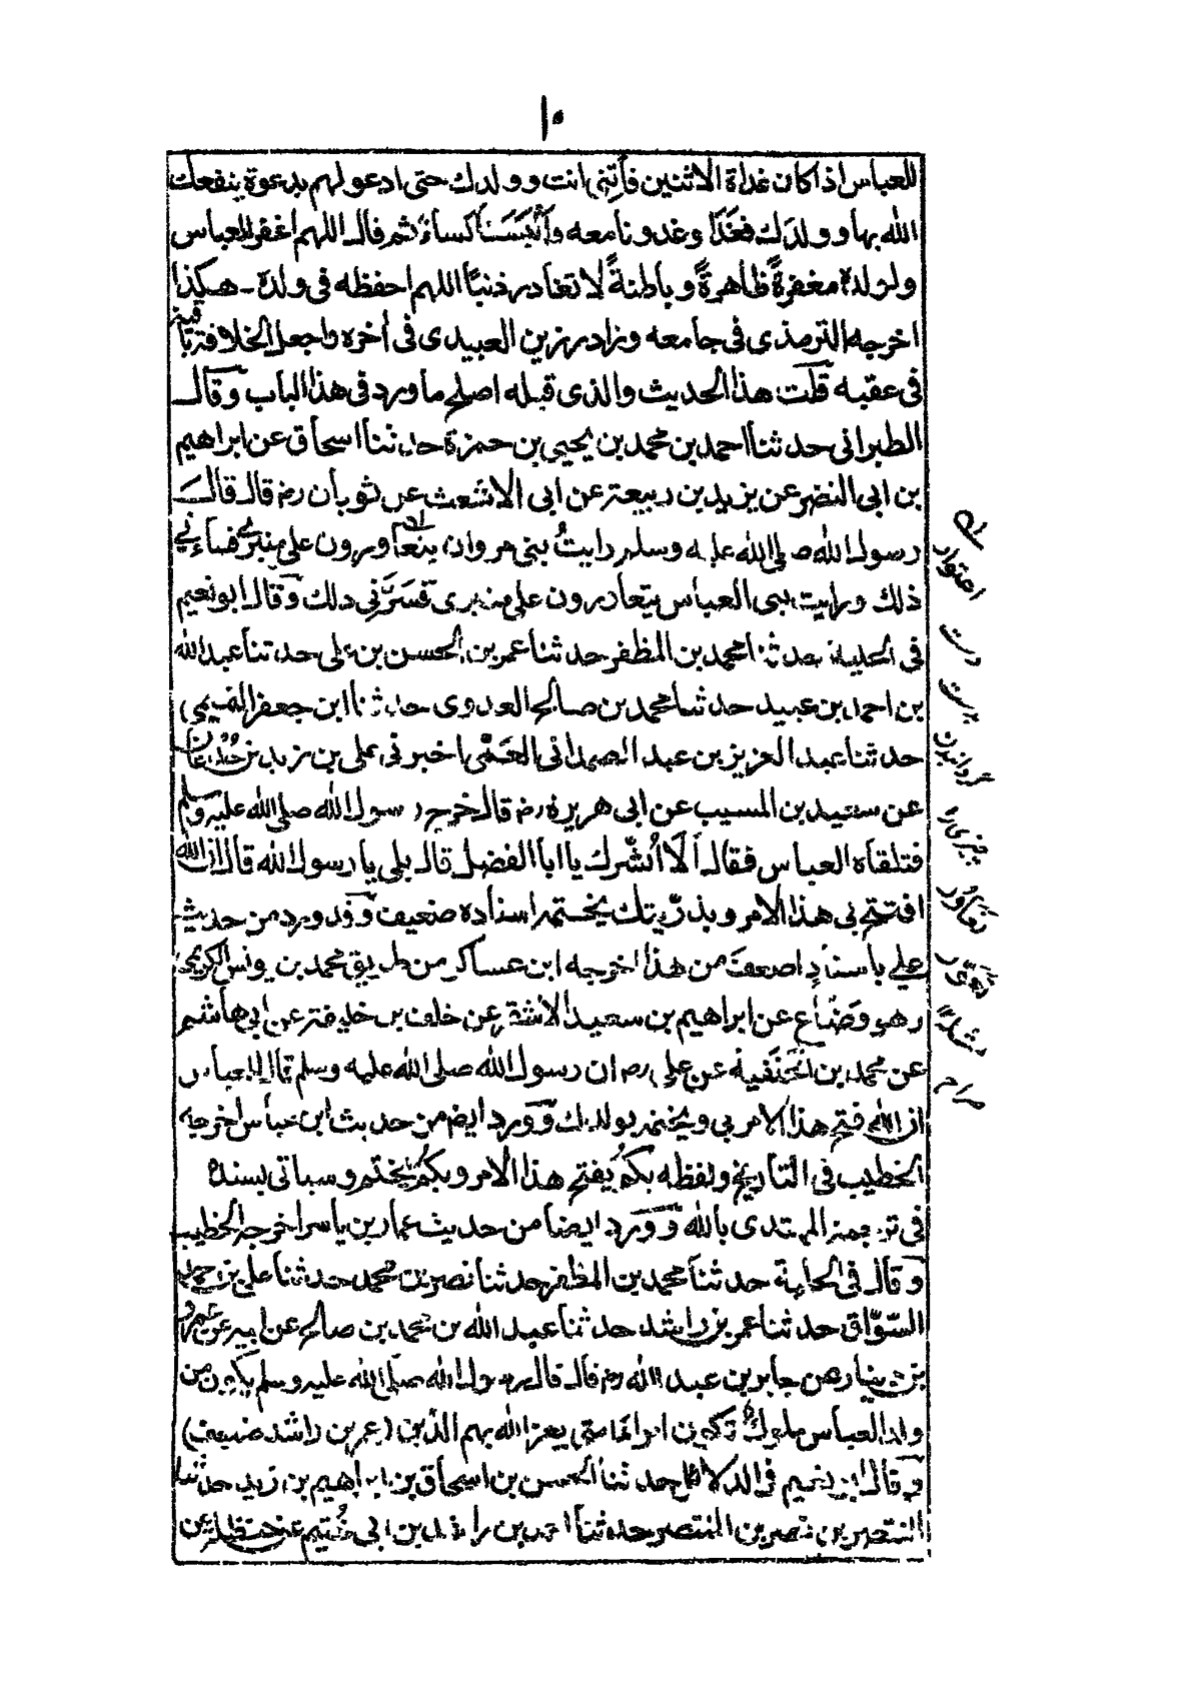 ١٠
للعباس اذا كان غداة الاثنين فأتنى انت وولدك حتى ادعو لهم بدعوة ينفعك
الله بها وولدك فغدا وغدونا معه وألبسنا كساء ثم قال اللهم اغفر للعباس
ولولده مغفرةً ظاهرةً وباطنةً لا تغادر ذنبًا اللهم احفظه فى ولده ـ هكذا
اخرجه الترمذى فى جامعه وزاد رزين العبيدى فى أخره واجعل الخلافة باقية
فى عقبه قلت هذا الحديث والذى قبله اصلح ما ورد فى هذا الباب وقال
الطبرانى حدثنا احمد بن محمد بن يحيى بن حمزة حدثنا اسحاق عن ابراهيم
بن ابى النضر عن يزيد بن ربيعة عن ابى الاشعث عن ثوبان رض قال قال
رسول الله صلى الله عليه وسلم رايتُ بنى مروان يتعاورون على منبرى فساءنى
ذلك ورايت بنى العباس يتعاورون على منبرى فسَرَّنى ذلك وقال ابو نعيم
فى الحلية حدثنا محمد بن المظفر حدثنا عمر بن الحسن بن على حدثنا عبد الله
بن احمد بن عبيد حدثنا محمد بن صالح العدوى حدثنا ابن جعفر التميمى
حدثنا عبد العزيز بن عبد الصمد انى العَمّى اخبرنى على بن زيد بن جُدعان
عن سعيد بن المسيب عن ابى هريرة رض قال خرج رسول الله صلى الله عليه وسلم
فتلقاه العباس فقال ألَا أُبشّرك يا ابا الفضل قال بلى يا رسول الله قال ان الله
افتتح بى هذا الامر وبذرّيتك يختمه اسناده ضعيف وقد ورد من حديث
على باسنادٍ اضعف من هذا اخرجه ابن عساكر من طريق محمد بن يونس الكريمى
وهو وَضّاع عن ابراهيم بن سعيد الاشقر عن خلف بن خليفة عن ابى هاشم
عن محمد بن الحَنَفية عن على رض ان رسول الله صلى الله عليه وسلم قال للعباس
ان الله فتح هذا الامر بى ويختمه بولدك وورد ايض من حديث ابن عباس اخرجه
الخطيب فى التاريخ ولفظه بكم يُفتح هذا الامر وبكم يُختم وسياتى بسنده
فى ترجمة المهتدى بالله وورد ايضا من حديث عمار بن ياسر اخرجه الخطيب
وقال فى الحلية حدثنا محمد بن المظفر حدثنا نصر بن محمد حدثنا على بن احمد
السوّاق حدثنا عمر بن راشد حدثنا عبد الله بن محمد بن صالح عن ابيه عن عمرو
بن دينار عن جابر بن عبد الله رض قال قال رسول الله صلى الله عليه وسلم يكون من
ولد العباس ملوك تكون امراء امتى يعز الله بهم الدين (عمر بن راشد ضعيف)
وقال ابو نعيم فى الدلائل حدثنا الحسن بن اسحاق بن ابراهيم بن زيد حدثنا
المنتصر بن نصر بن المنتصر حدثنا احمد بن راشد بن ابى خُثيم عن حنظلة عن
اعتوار
دست
بدست
گردانيدن
چيزى را
تعاوُر
تعوّر